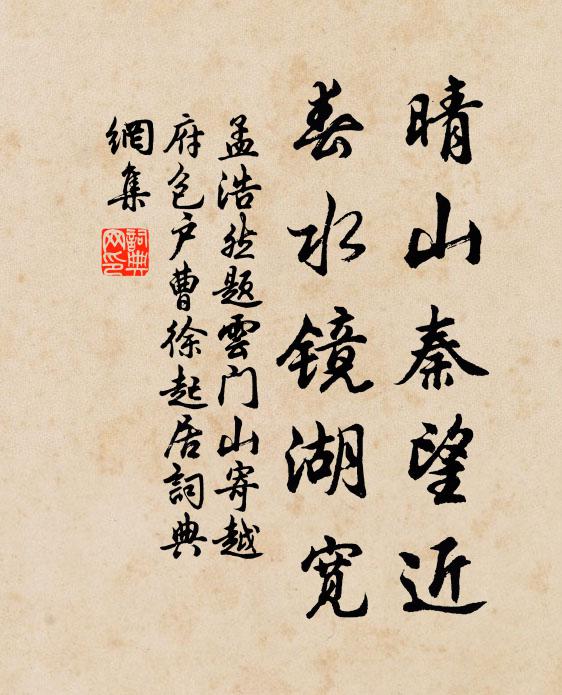 晴山秦望近
春水镜湖宽
孟浩然题雲门山寄越
府包户曹徐起居詞典
網集
詞典
网印